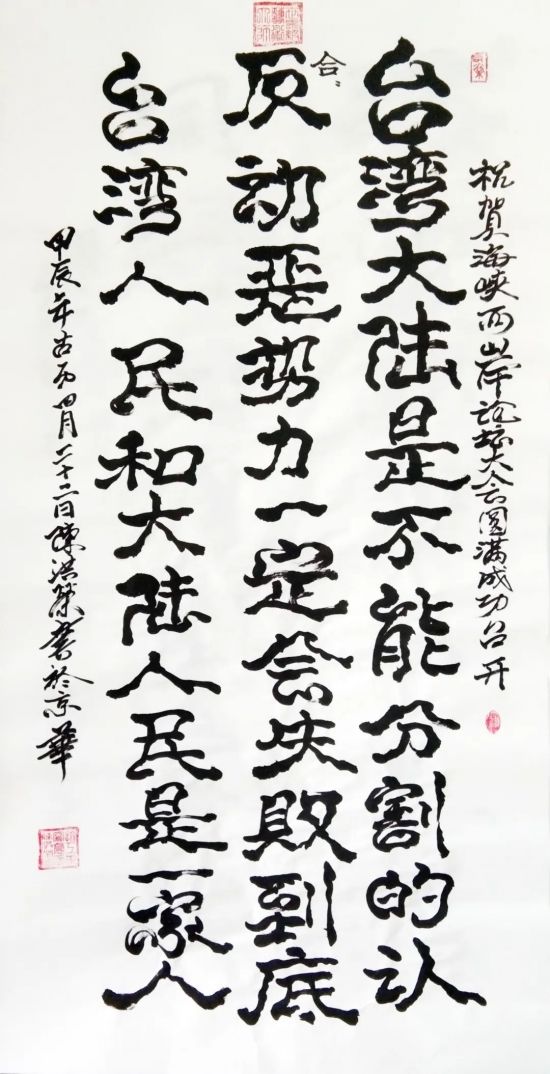 祝賀海峡两岸論坛大会圆满成功召开
台湾大陆是不能分割的认
合
反动恶势力一定会失败到底
台湾人民和大陆人民是一家人
甲辰年古历四月二十二日陳洪書於京華